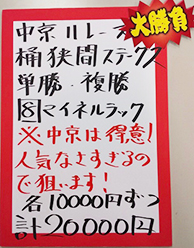 大勝負
中京11レース
桶狭間ステークス
単勝・複勝
8マイネルラック
※中京は得意!
人気なさすぎるの
で狙います!
各10000円ずつ
計20000円